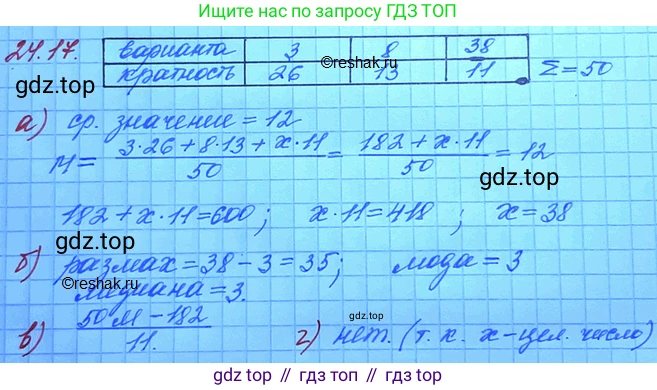 Ищите нас по запросу ГДЗ ТОП
24.17. варианта 3 8 38
кратность 26 13 11 Σ=50
©reshak.ru
gdz.top
а) ср. значение = 12
M = (3·26+8·13+x·11)/50 = (182+x·11)/50 = 12
gdz.top
182+x·11=600; x·11=418; x=38
gdz.top
б) размах = 38-3=35; мода = 3
медиана = 3.
gdz.top
©reshak.ru
в) (50M-182)/11. г) нет. (т. к. x-цел. число)
gdz.top // gdz.top // gdz.top // gdz.top